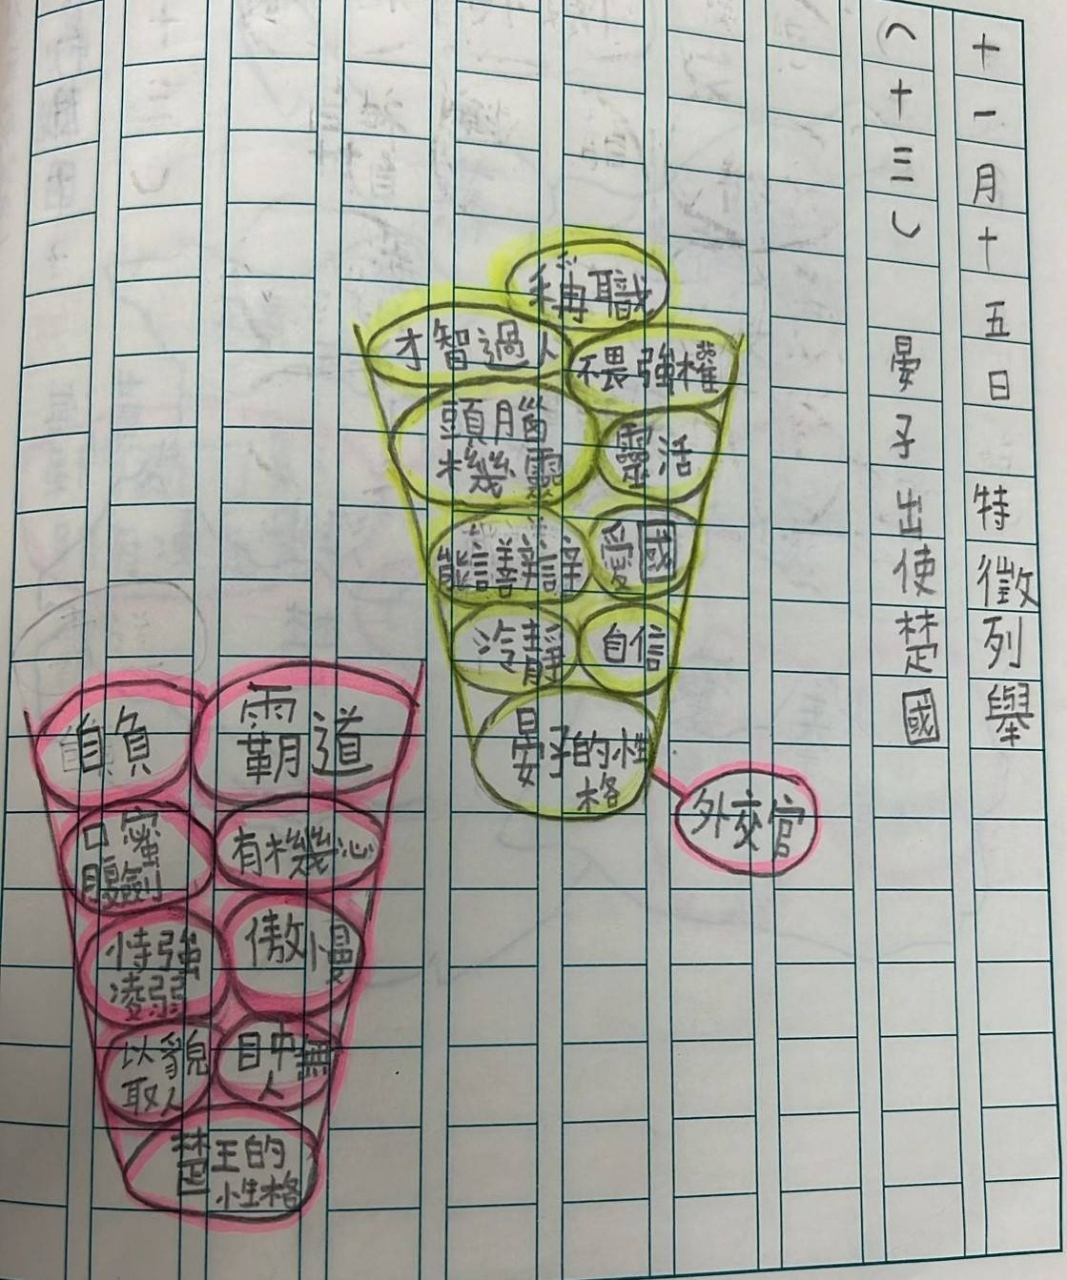 十一月十五日 特徵列舉
(十三) 晏子出使楚國
稱職
才智過人
不畏強權
頭腦
機靈
靈活
能言善辯
愛國
冷靜
自信
晏子的性
格
外交官
自負
霸道
口蜜
腹劍
有機心
恃強
凌弱
傲慢
以貌
取人
目中無
人
楚王的
性格